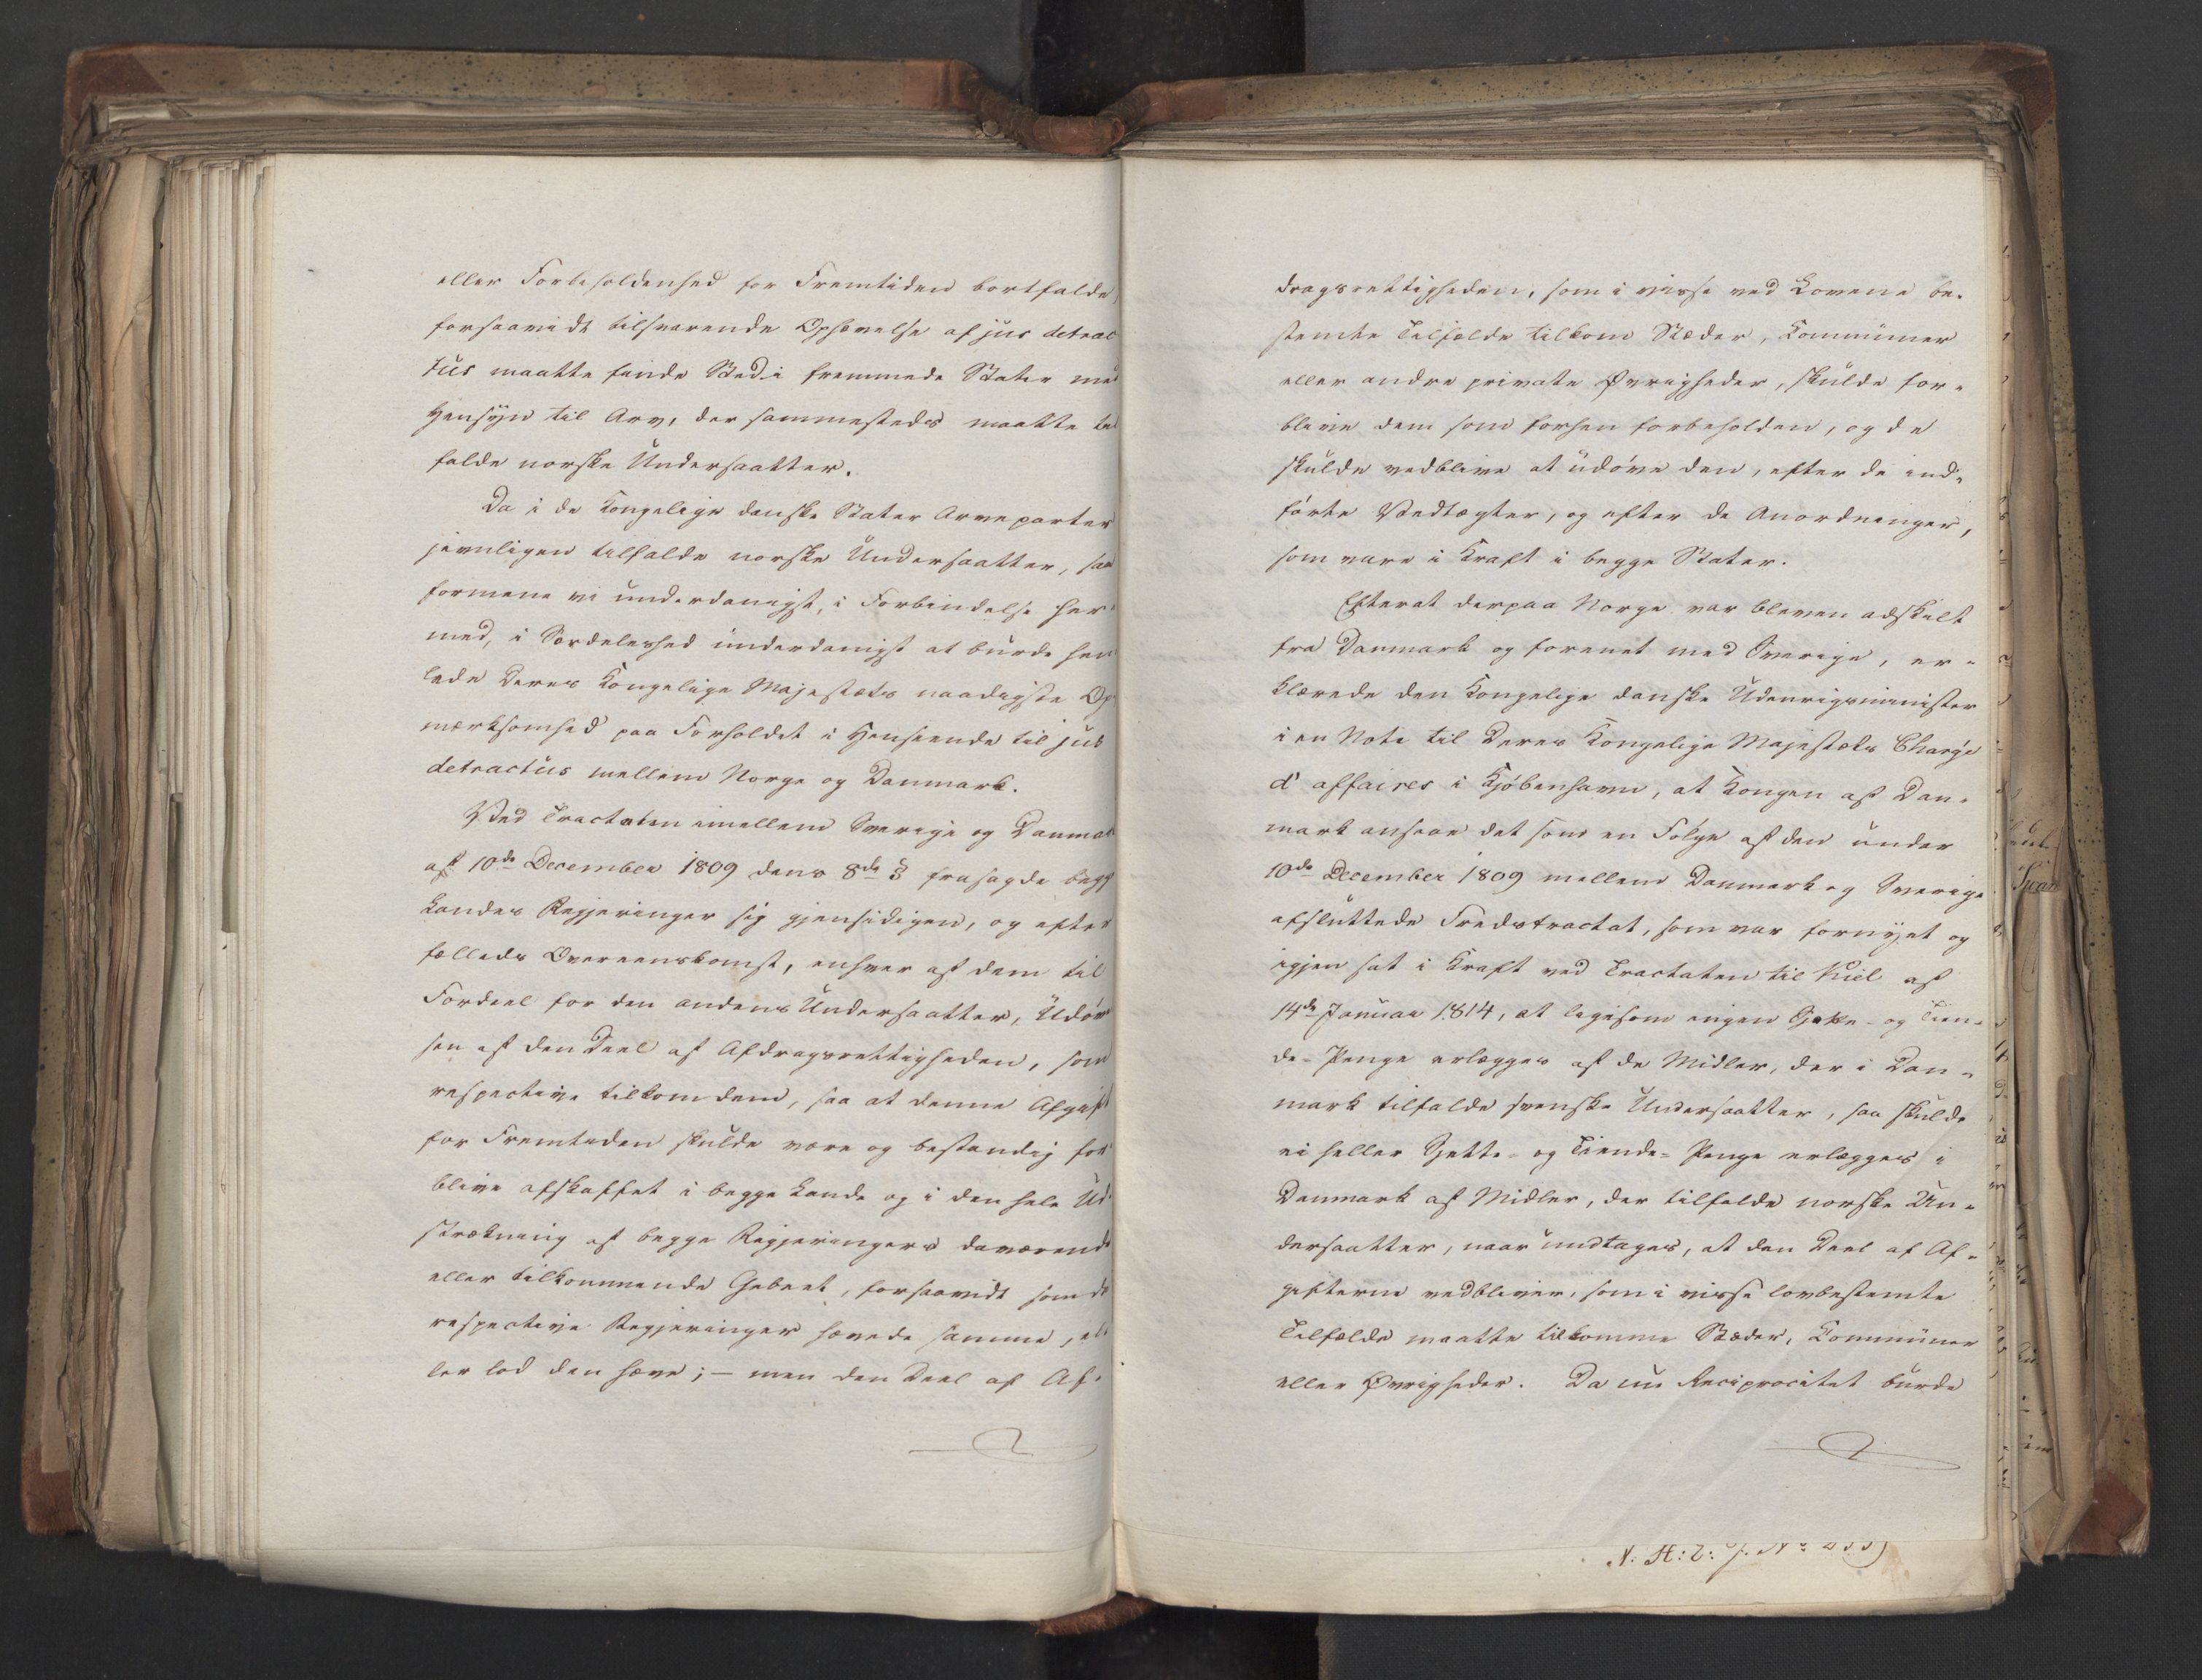 eller Forbeholdenhed for Fremtiden bortfalde,
forsaavidt tilsvarende Ophævelse af jus detrac
tus maatte finde Sted i fremmede Stater med
Hensyn til Arv, der sammesteds maatte til
falde norske Undersaatter.
Da i de Kongelige danske Stater Arveparter
jevnligen tilfalde norske Undersaatter, saa
formene vi underdanigst, i Forbindelse her-
med, i Særdeleshed underdanigst at burde hen
lede Deres Kongelige Majestæts naadigste Op
mærksomhed paa Forholdet i Henseende til jus
detractus mellem Norge og Danmark.
Ved Tractaten imellem Sverige og Danmark
af 10de December 1809 dens 8de § frasagde begge
Landes Regjeringer sig gjensidigen, og efter
fælleds Overeenskomst, enhver af dem til
Fordeel for den andens Undersaatter, Udøv
sen af den Deel af Afdragsrettigheden, som
respective tilkom dem, saa at denne Afgift
for Fremtiden skulde være og bestandig for
blive afskaffet i begge Lande og i den hele Ud-
strækning af begge Regjeringers daværende
eller tilkommende Gebeet, forsaavidt som de
respective Regjeringer hævede samme, el
ler lod den hæve; – men den Deel af Af-
dragsrettigheden, som i visse ved Lovene be-
stemte Tilfælde tilkom Stæder, Kommuner
eller andre private Øvrigheder, skulde for-
blive dem som forhen forbeholden, og de
skulde vedblive at udøve den, efter de ind-
førte Vedtægter, og efter de Anordninger,
som vare i Kraft i begge Stater.
Efterat derpaa Norge var bleven adskilt
fra Danmark og forenet med Sverige, er-
klærede den Kongelige danske Udenrigsminister
i en Note til Deres Kongelige Majestæts Chargé
d'affaires i Kjøbenhavn, at Kongen af Dan-
mark ansaae det som en Følge af den under
10de December 1809 mellem Danmark og Sverige
afsluttede Fredstractat, som var fornyet og
igjen sat i Kraft ved Tractaten til Kiel af
14de Januar 1814, at ligesom ingen Sjette- og Tien-
de-Penge erlægges af de Midler, der i Dan-
mark tilfalde svenske Undersaatter, saa skulde
ei heller Sjette- og Tiende-Penge erlægges i
Danmark af Midler, der tilfalde norske Un-
dersaatter, naar undtages, at den Deel af Af-
gifterne vedbliver, som i visse lovbestemte
Tilfælde maatte tilkomme Stæder, Kommuner
eller Øvrigheder. Da nu Reciprocitet burde